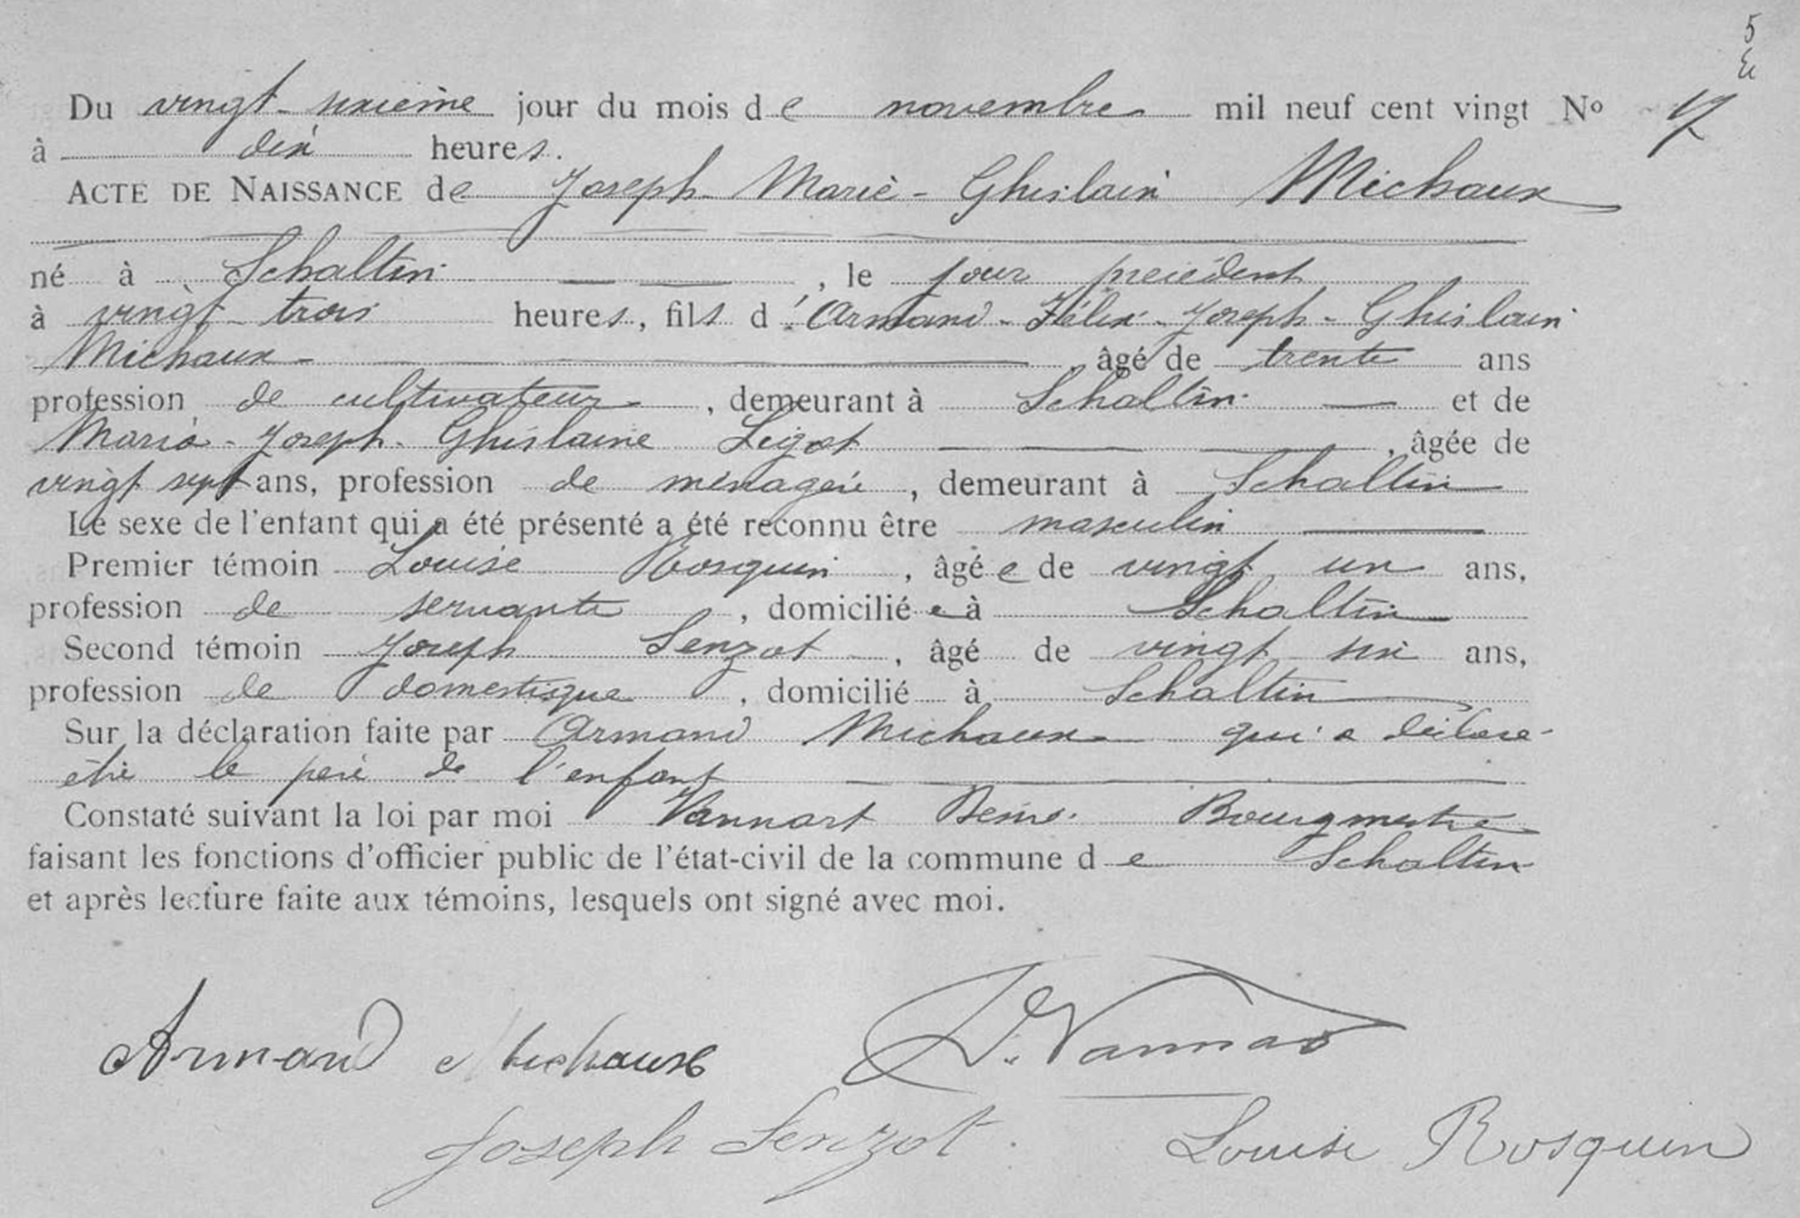 5
Du vingt-sixième jour du mois de novembre mil neuf cent vingt Nº
à dix heures.
ACTE DE NAISSANCE de Joseph-Marie-Ghislain Michaux
né à Schaltin, le jour précédent
à vingt-trois heures, fils d'Armand-Félix-Joseph-Ghislain
Michaux âgé de trente ans
profession de cultivateur, demeurant à Schaltin et de
Maria-Joseph-Ghislaine Ligot, âgée de
vingt sept ans, profession de ménagère, demeurant à Schaltin
Le sexe de l'enfant qui a été présenté a été reconnu être masculin
Premier témoin Louise Rosquin, âgée de vingt un ans,
profession de servante, domiciliée à Schaltin
Second témoin Joseph Senzot, âgé de vingt six ans,
profession de domestique, domicilié à Schaltin
Sur la déclaration faite par Armand Michaux qui a déclaré
être le père de l'enfant
Constaté suivant la loi par moi Vannart Bourgmestre
faisant les fonctions d'officier public de l'état-civil de la commune de Schaltin
et après lecture faite aux témoins, lesquels ont signé avec moi.
Armand Michaux
Joseph Senzot. Louise Rosquin